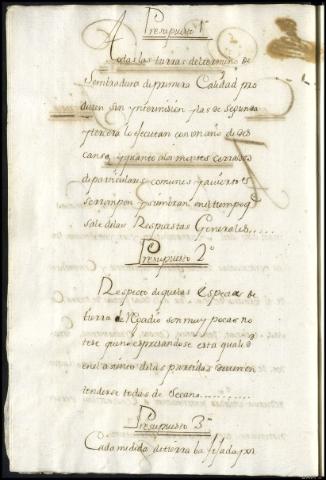 Presupuesto 1º
Todas las tierras del termino de
Sembradura de primera Calidad pro
ducen sin yntermision y las de segunda
y tercera lo executan con un año de des
canso, y quanto a los montes cerrados
de particulares comunes y aviertos
se rompen y siembran en el tiempo q
sale delas Respuestas Generales.....
Presupuesto 2º
Respecto de que las especies de
tierra de Regadio son muy pocas no
te se que no expresandose esta qualid
en el asiento delas partidas deven en
tenderse todas de Secano..........
Presupuesto 3º
Cada medida de tierra ba fijada por